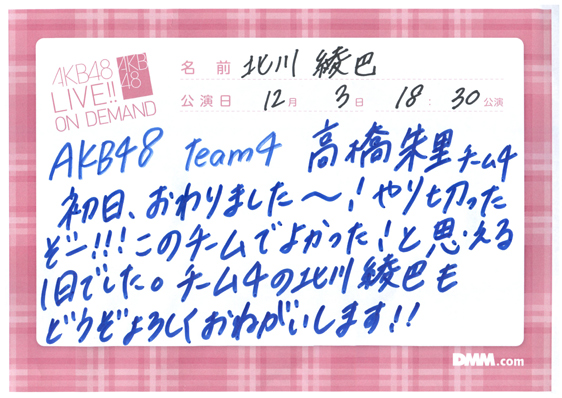 AKB48
LIVE!!
ON DEMAND
AKB
48
名 前 北川 綾巴
公演日 12月 3日 18:30公演
AKB48 Team4 高橋朱里チーム4
初日、おわりました〜!やり切った
ぞー!!!このチームでよかった!と思える
1日でした。チーム4の北川綾巴も
どうぞよろしくおねがいします!!
DMM.com